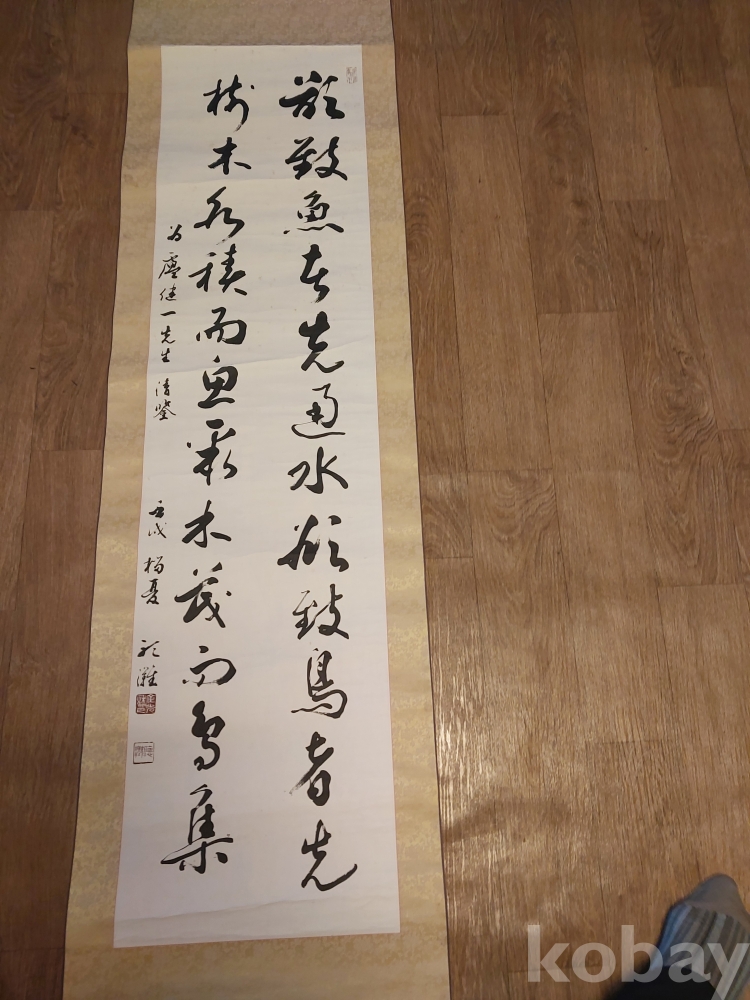 欲致魚者先通水欲致鳥者先
樹木水積而魚聚木茂而鳥集
為盧健一先生 清鑒 壬戌 榴夏
kobay